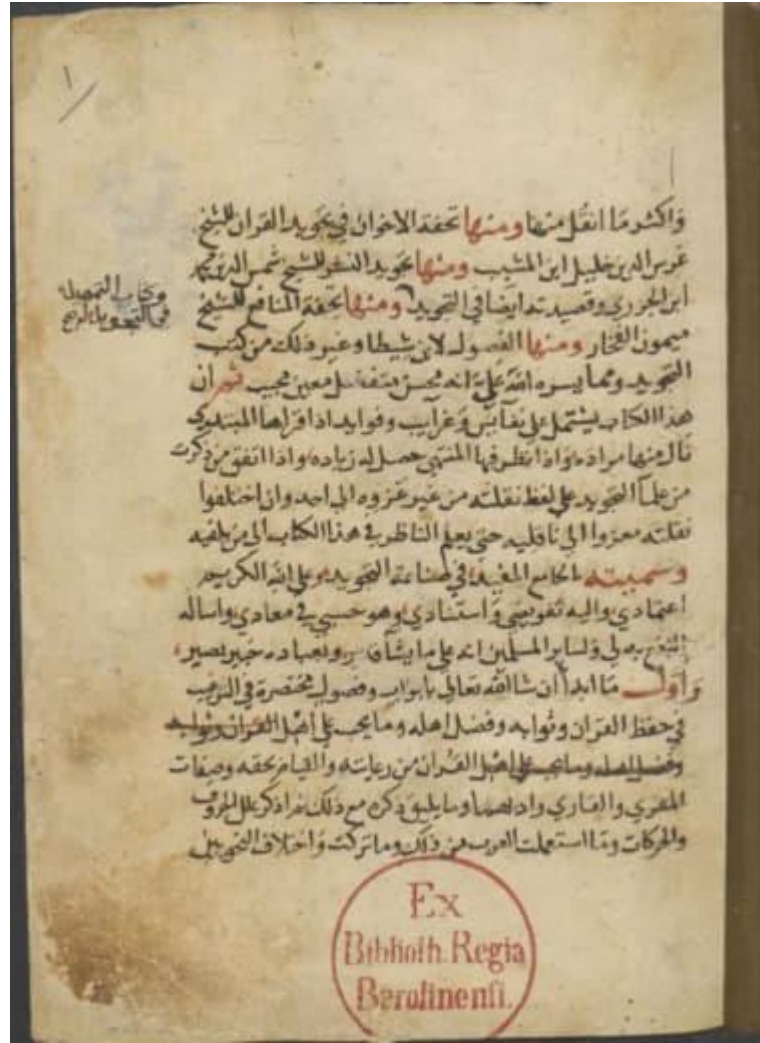 ١
واكثر ما انقل منها ومنها تحفة الاخوان في تجويد القران للشيخ
غرس الدين خليل ابن المشبب ومنها تجويد النشر للشيخ شمس الدين محمد
ابن الجزري وقصيدته ايضا في التجويد ومنها تحفة المنافع للشيخ
ميمون الفخار ومنها الفصول لابن شيطا وغير ذلك من كتب
التجويد ومما يسره الله علي انه محسن متفضل معين مجيب ثم ان
هذا الكتاب يشتمل على نفايس وغرايب وفوايد اذا قراها المبتدي
نال منها مراده واذا نظر فيها المنتهي حصل له زياده واذا اتفق من ذكرت
من علما التجويد على لفظ نقلته من غير عزوه الى احد وان اختلفوا
نقلته معزوا الى ناقليه حتى يعلم الناظر في هذا الكتاب الى من يلقيه
وسميته الجامع المفيد في صناعة التجويد وعلى الله الكريم
اعتمادي واليه تفويضي واستنادي وهو حسبي في معادي واساله
النفع به لي ولساير المسلمين انه على ما يشا وبعباده خبير بصير
واول ما ابدا ان شا الله تعالى بابواب وفصول مختصرة في الترغيب
في حفظ القران وثوابه وفضل اهله وما يجب على اهل القران وثوابه
وفضل اهله وما يجب على اهل القران من رعايته والقيام بحقه وصفات
المقري والقاري وادابهما وما يليق ذكره مع ذلك ثم اذكر علل الحروف
والحركات وما استعملت العرب من ذلك وما تركت واختلاف النحويين
وكتاب التمهيد
في التجويد
Ex
Biblioth. Regia
Berolinensi.